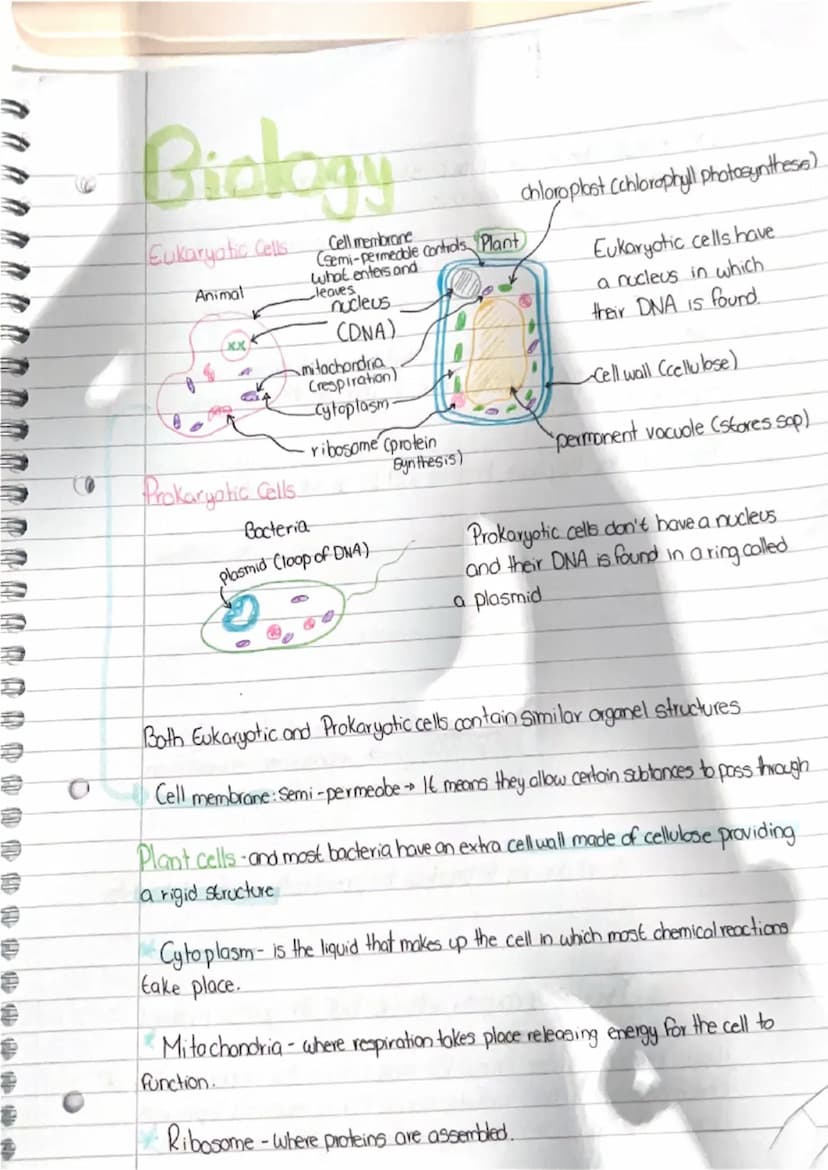 Biology
chloroplast (chlorophyll photosynthess)
Eukaryotic Cells
Cell membrane
(semi-permeable controls
what enters and
leaves
Plant
Eukaryotic cells have
a nucleus in which
their DNA is found.
Animal
nucleus
(DNA)
xx
mitochordria
(respiration)
cytoplasm
ribosome (protein
synthesis)
cell wall (cellulose)
permanent vacuole (stores sap)
Prokaryotic Cells
Bacteria
plasmid (loop of DNA)
Prokaryotic cells don't have a nucleus
and their DNA is found in a ring called
a plasmid
Both Eukaryotic and Prokaryotic cells contain similar organel structures
Cell membrane: Semi-permeabe → It means they allow certain subtances to pass through
Plant cells - and most bacteria have an extra cell wall made of cellulose providing
a rigid structure
Cytoplasm - is the liquid that makes up the cell in which most chemical reactions
take place.
Mitochondria - where respiration takes place releasing energy for the cell to
function.
Ribosome - where proteins are assembled.